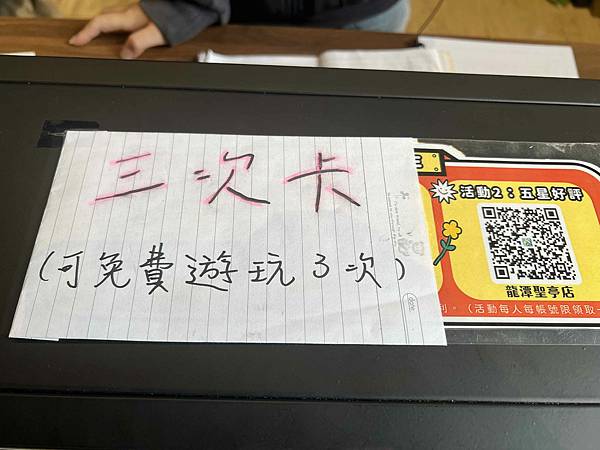 三次卡
(可免費遊玩3次)
活動2：五星好評
龍潭聖亭店
利。（活動每人每帳號限領取一